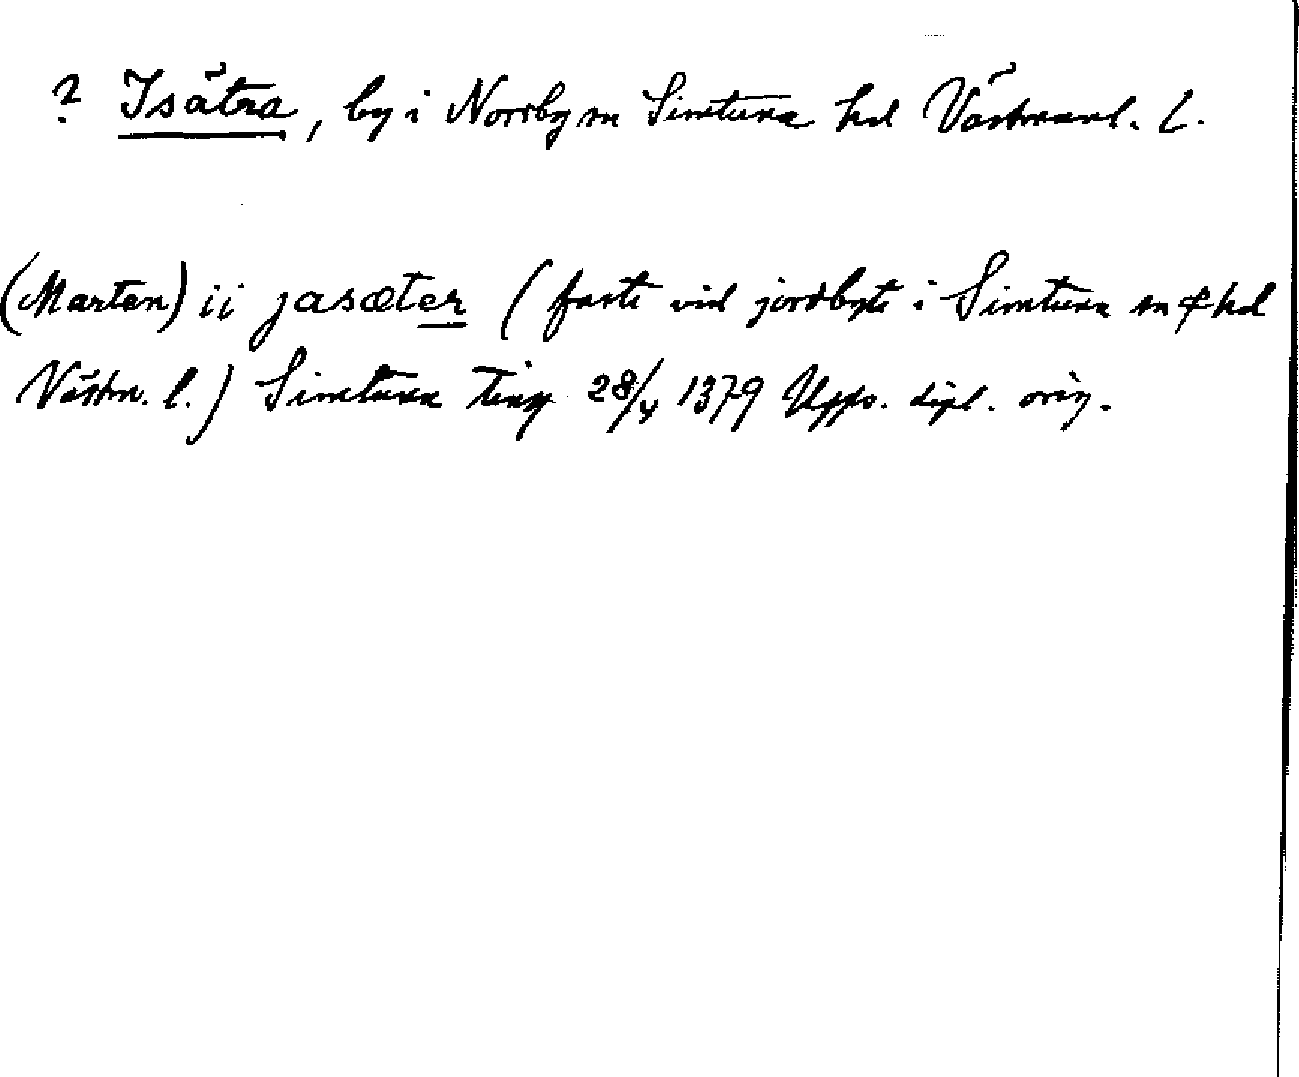 ? Isätra, by i Norrby sn Simtuna hd Västmanl. l.
(Marten) ii jasæter (faste vid jordbyte i Simtuna sn & hd
Västm. l.) Simtuna ting 28/4 1379 Upps. dipl. orig.